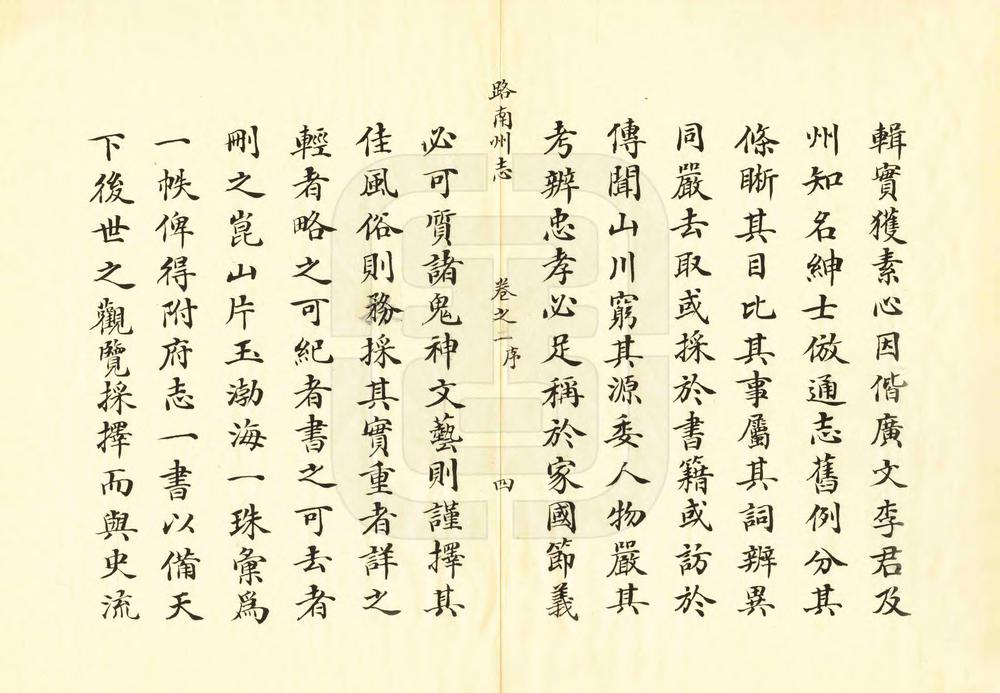 輯實獲素心因偕廣文李君及
州知名紳士倣通志舊例分其
條晰其目比其事屬其詞辨異
同嚴去取或採於書籍或訪於
傳聞山川窮其源委人物嚴其
考辨忠孝必足稱於家國節義
路南州志 卷之二序 四
必可質諸鬼神文藝則謹擇其
佳風俗則務採其實重者詳之
輕者略之可紀者書之可去者
刪之崑山片玉渤海一珠彙為
一帙俾得附府志一書以備天
下後世之觀覽採擇而與史流